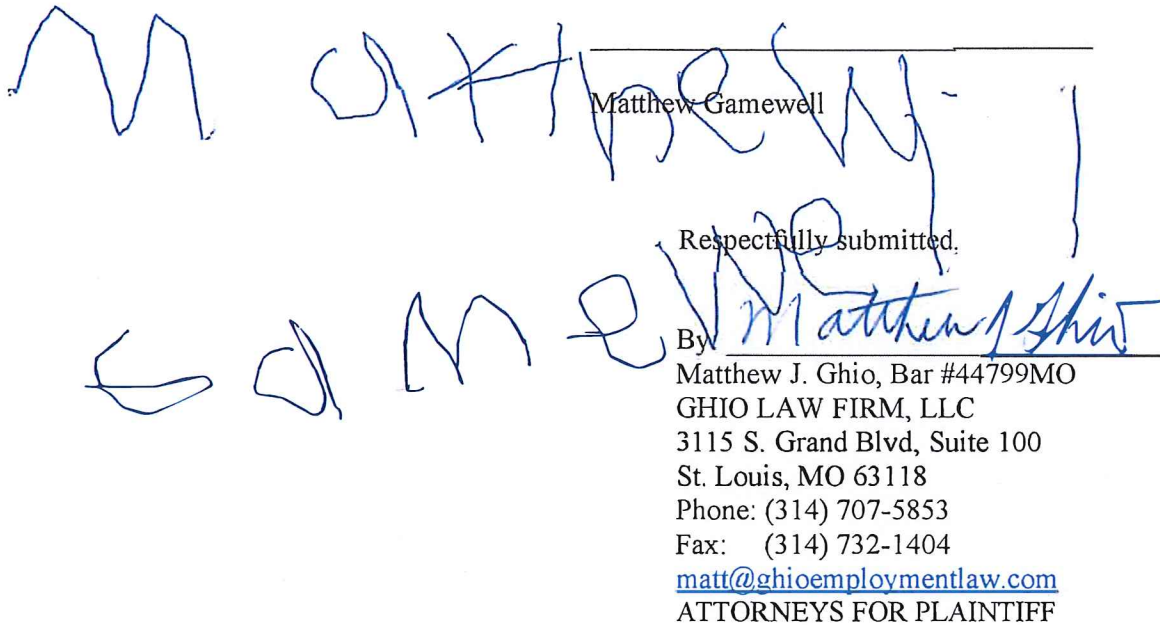 MattheW
Matthew Gamewell
Respectfully submitted,
GaMeWell
By Matthew J Ghio
Matthew J. Ghio, Bar #44799MO
GHIO LAW FIRM, LLC
3115 S. Grand Blvd, Suite 100
St. Louis, MO 63118
Phone: (314) 707-5853
Fax: (314) 732-1404
matt@ghioemploymentlaw.com
ATTORNEYS FOR PLAINTIFF